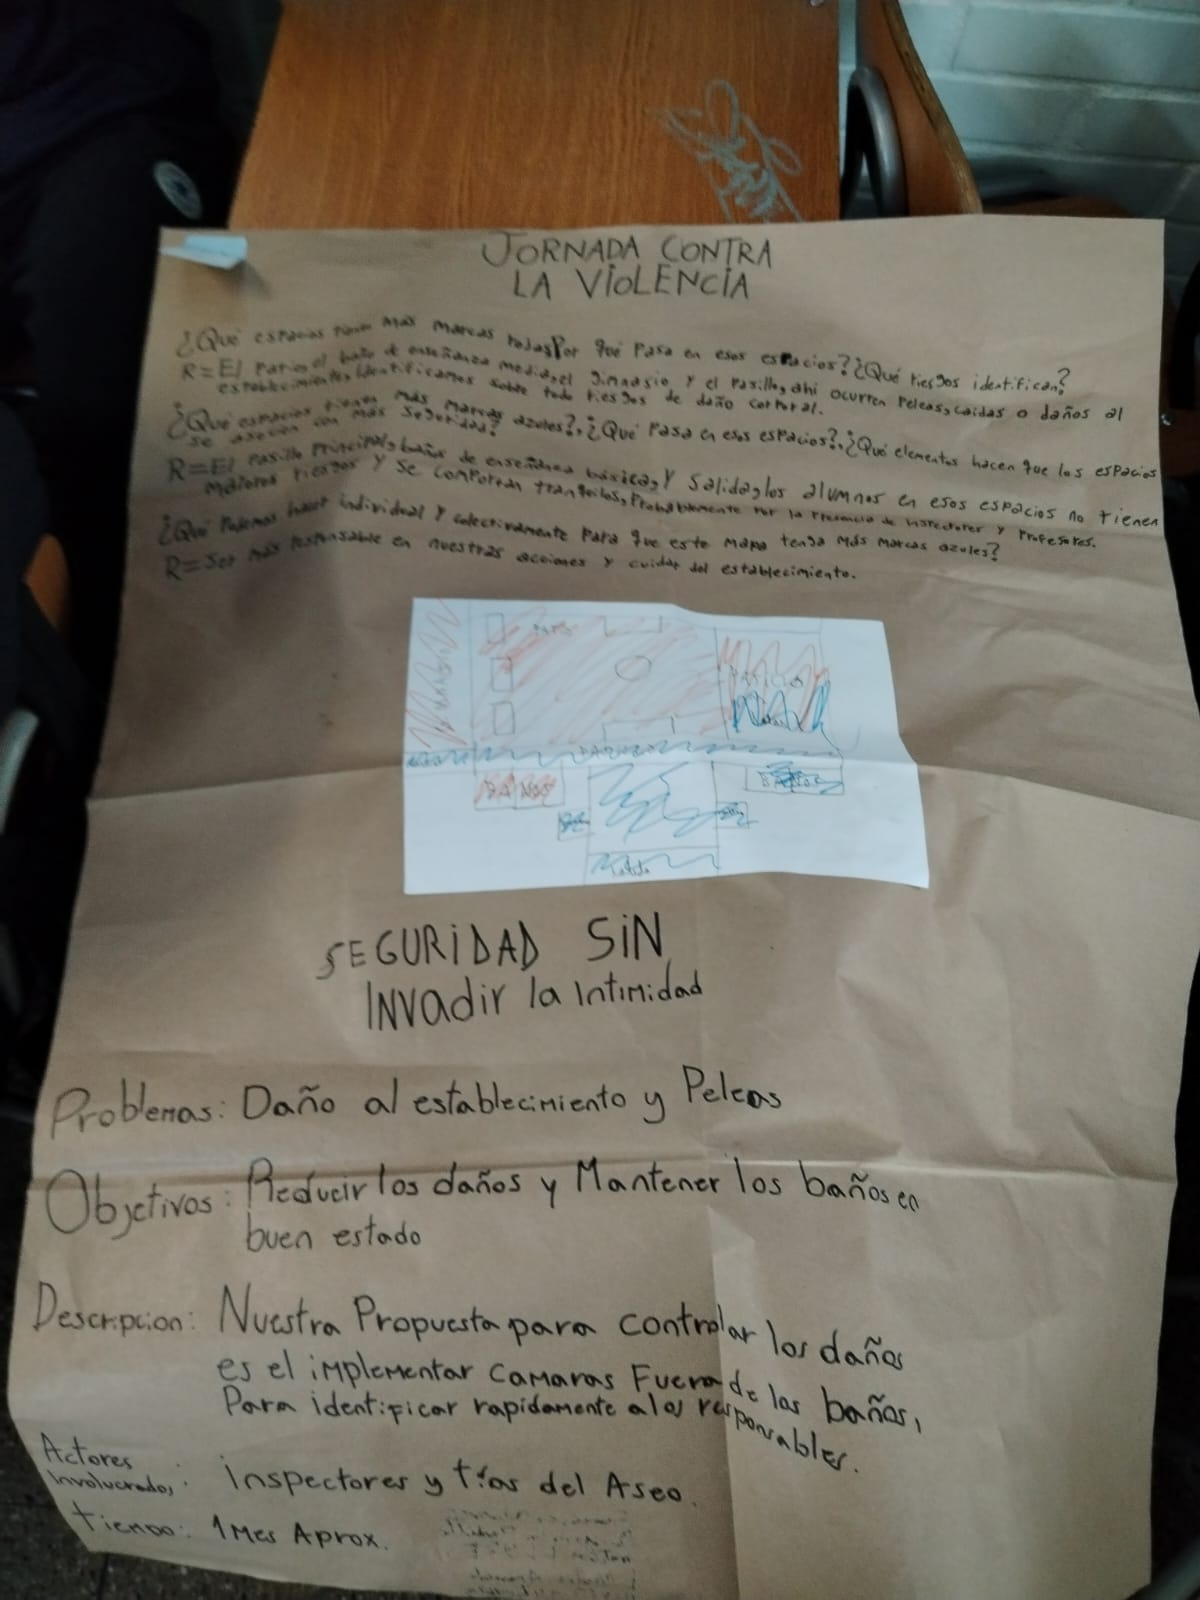 JORNADA CONTRA
LA VIOLENCIA
¿Qué espacios tienen más marcas rojas? Por qué pasa en esos espacios? ¿Qué riesgos identifican?
R= El patio, el baño de enseñanza media, el gimnasio y el pasillo, ahí ocurren peleas, caídas o daños al
establecimiento, identificamos sobre todo riesgos de daño corporal.
¿Qué espacios tienen más marcas azules?, ¿Qué pasa en esos espacios?, ¿Qué elementos hacen que los espacios
se asocien con más seguridad?
R= El pasillo principal, baños de enseñanza básica, y salida, los alumnos en esos espacios no tienen
mayores riesgos y se comportan tranquilos, probablemente por la presencia de inspectores y profesores.
¿Qué podemos hacer individual y colectivamente para que este mapa tenga más marcas azules?
R= Ser más responsable en nuestras acciones y cuidar del establecimiento.
PATIO
GIMNASIO
BAÑOS
BAÑOS
SEGURIDAD SIN
INVADIR la Intimidad
Problemas: Daño al establecimiento y Peleas
Objetivos: Reducir los daños y Mantener los baños en
buen estado
Descripcion: Nuestra Propuesta para controlar los daños
es el implementar camaras Fuera de los baños,
Para identificar rapidamente a los responsables.
Actores
Involucrados: Inspectores y tías del Aseo.
tiempo: 1 Mes Aprox.